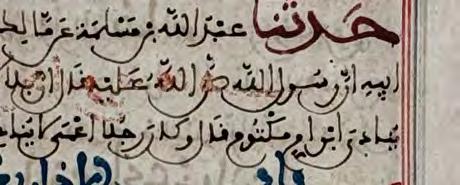 حدثنا عبد الله بن مسلمة عن مالك
ابيه ان رسول الله صلى الله عليه قال ان بلالا
ينادى ابن ام مكتوم قال وكان رجلا اعمى لا ينادي